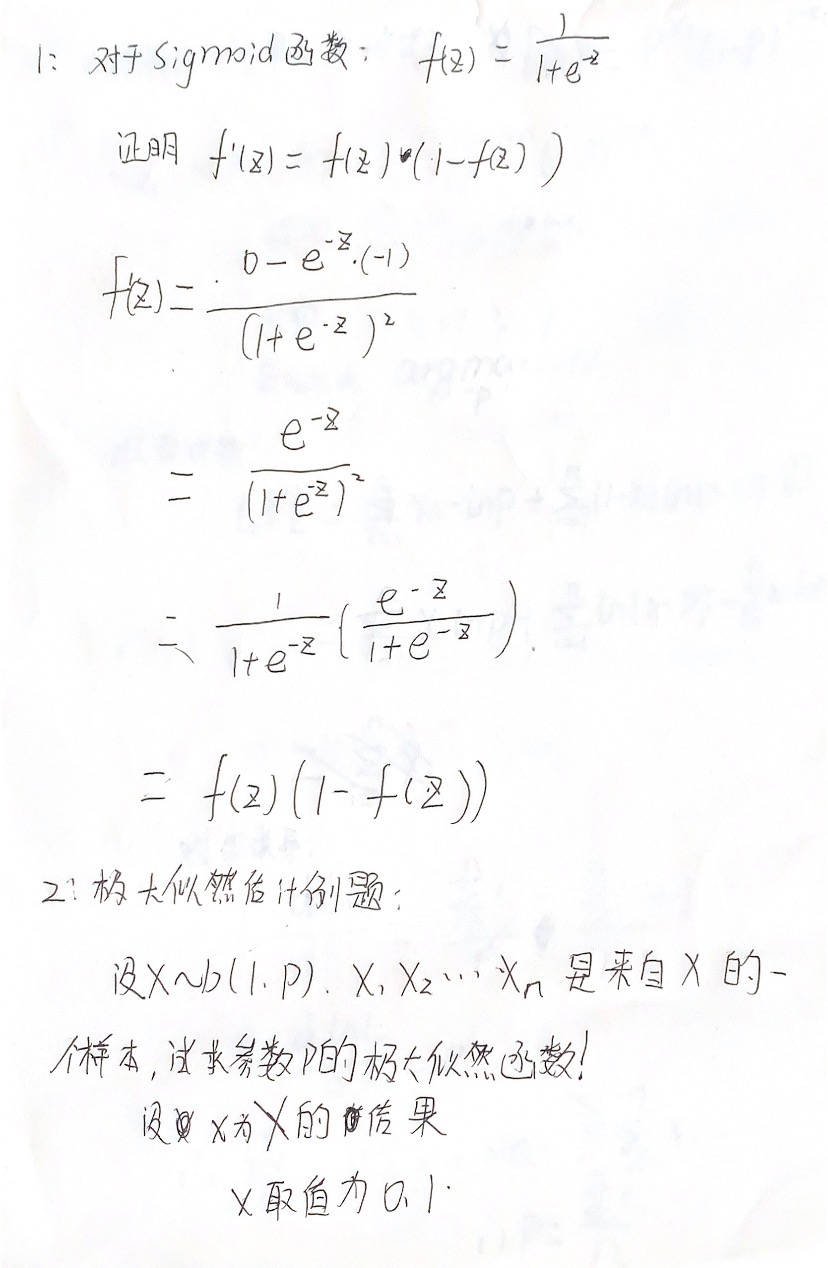 1: 对于Sigmoid函数: f(z) = 1/(1+e^-z)
证明 f'(z) = f(z)·(1-f(z))
f'(z) = (0-e^-z·(-1))/(1+e^-z)^2
= e^-z/(1+e^-z)^2
= 1/(1+e^-z) (e^-z/(1+e^-z)).
= f(z)(1-f(z))
2: 极大似然估计例题:
设X~b(1.p). X1 X2 ... Xn 是来自X的一
个样本,试求参数p的极大似然函数!
设 x为X的 结果
x取值为0,1.